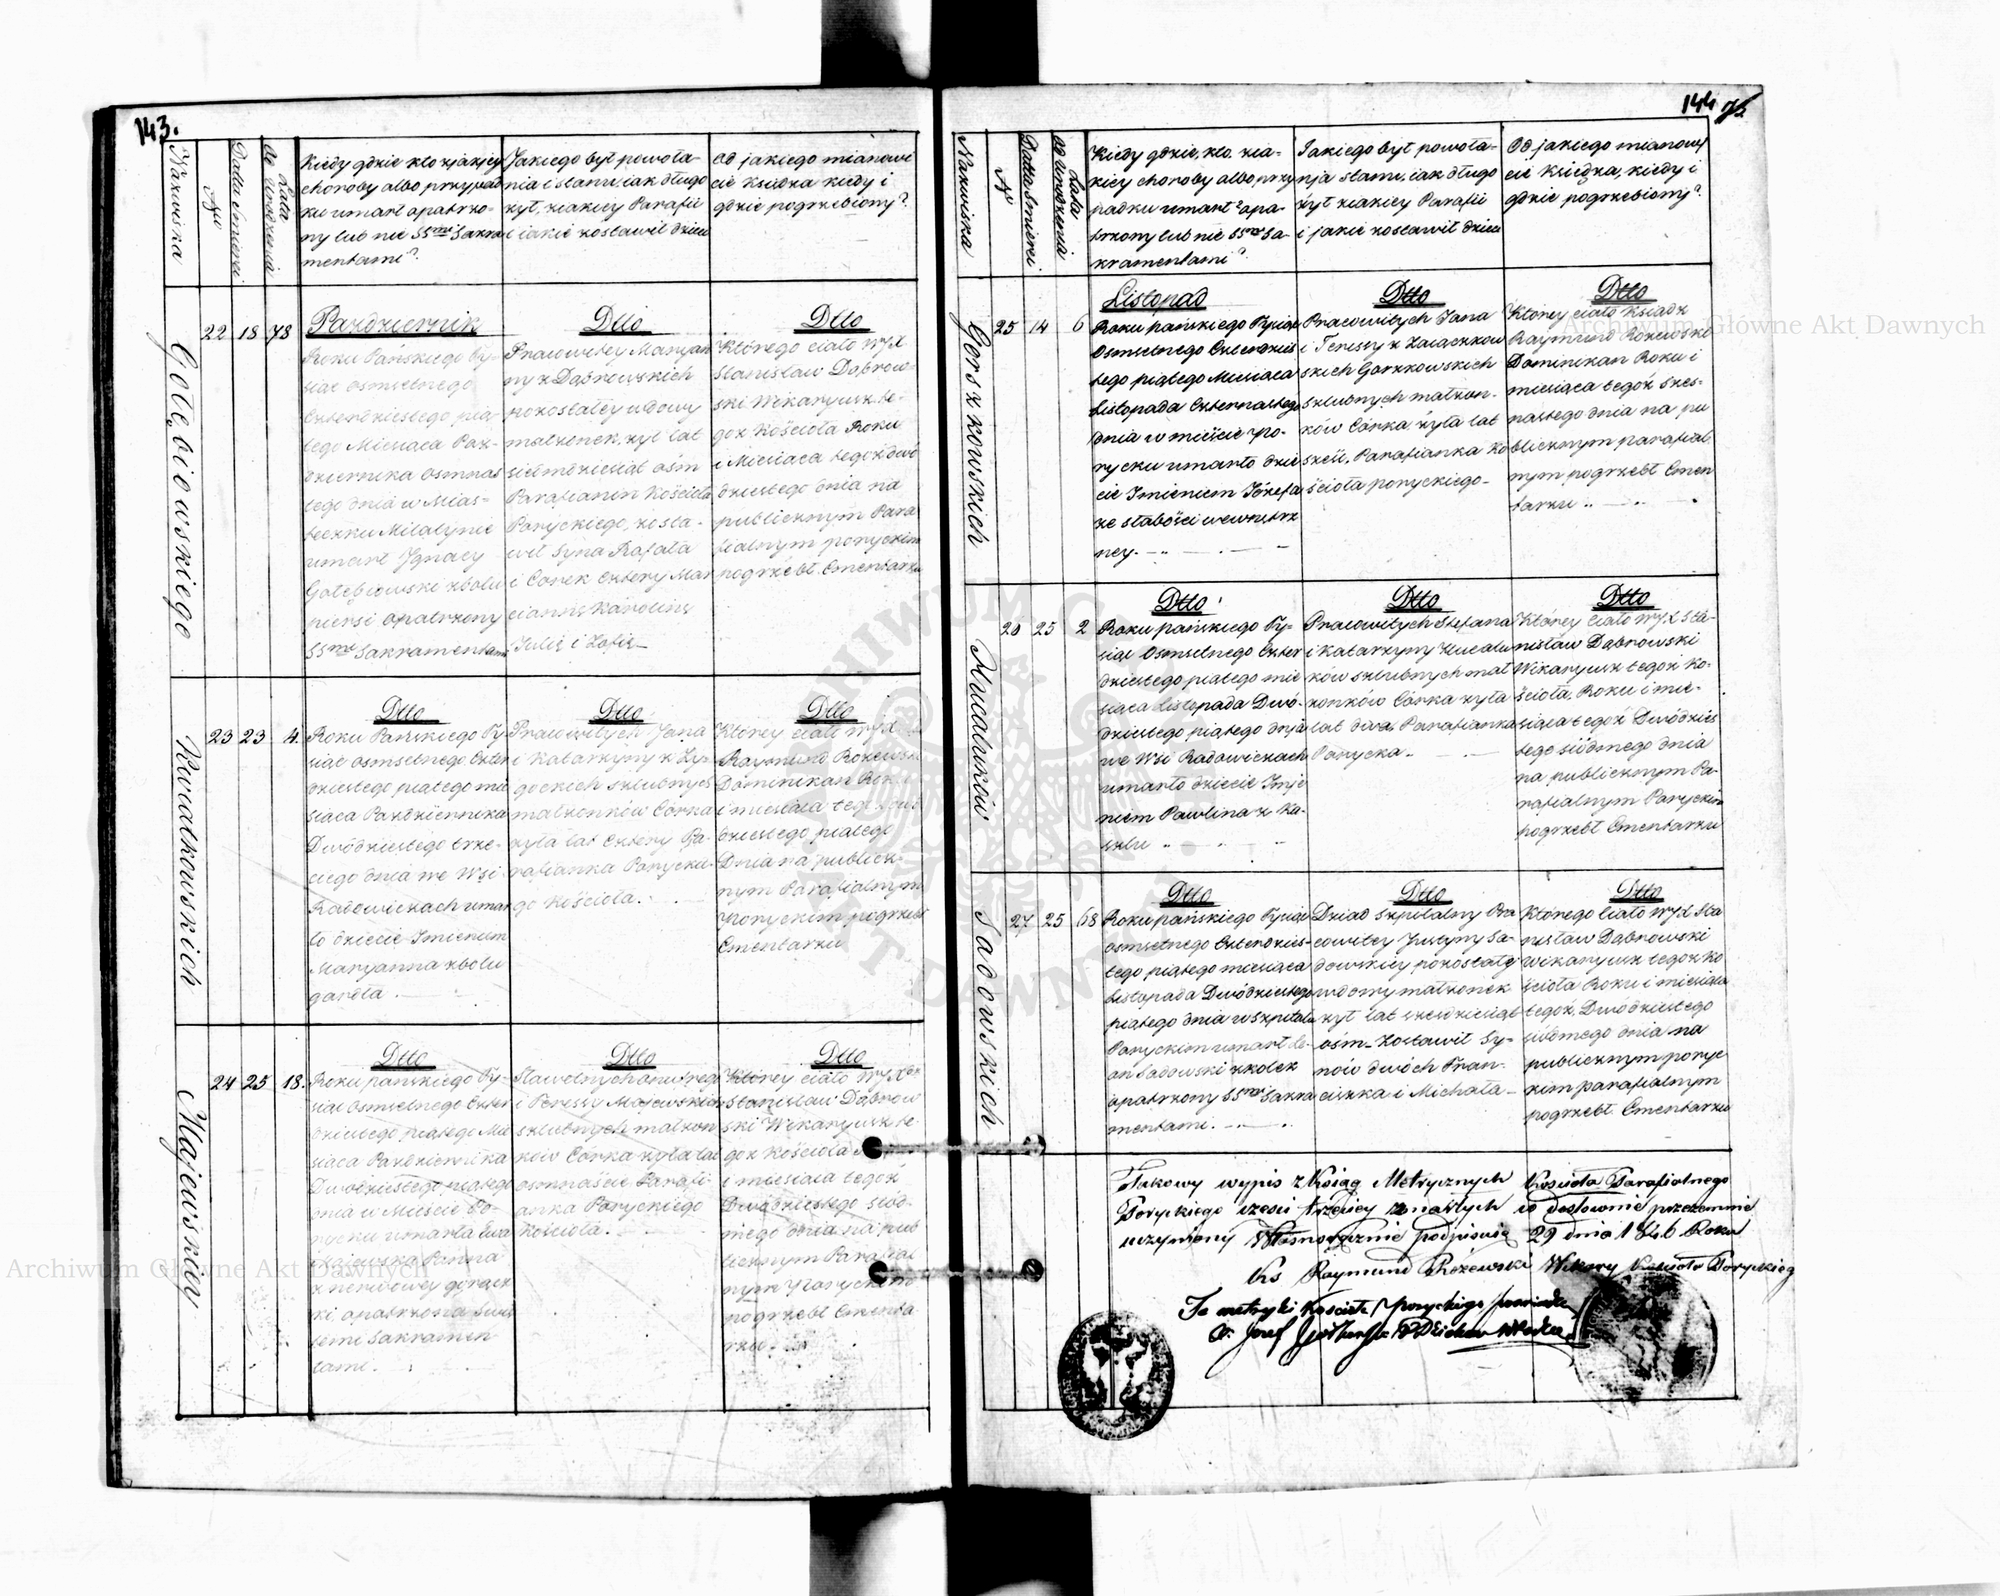 143.
Nazwiska
No
Data śmierci
Lata
od urodzenia
Kiedy gdzie kto zjakiey
choroby albo przypad
ku umarł opatrzo-
ny lub nie SSmi Sakra
mentami?
Jakiego był powoła-
nia i stanu, iak długo
żył, ziakiey Parafii
i iakie zostawił dzieci
Od jakiego mianowi
cie Księdza kiedy i
gdzie pogrzebiony?
Gołębiowskiego
22 18 78
Pazdziernik
Roku Pańskiego Ty-
siąc osmsetnego
Czterdziestego pią-
tego Miesiąca Paz-
dziernika osmnas
tego dnia w Mias-
teczku Milatynie
umarł Jgnacy
Gołębiowski zbolu
piersi opatrzony
SSmi Sakramentami
Dtto
Pracowitey Maryan
ny z Dąbrowskich
pozostałey wdowy
małżonek, żył lat
siedmdziesiąt ośm
Parafianin Kościoła
Poryckiego, zosta-
wił Syna Rafała
i Corek cztery Mar
ciannę Karolinę
Julię i Zofię
Dtto
Którego ciało WJX
Stanisław Dąbrow-
ski Wikaryusz te-
goż Kościoła Roku
i Miesiąca tegoż dwu
dziestego dnia na
publicznym Para
fialnym poryckim
pogrzebł Cmentarzu
Kwiatkowskich
23 23 4.
Dtto
Roku Pańskiego Ty
siąc osmsetnego Czter
dziestego piątego mie
siąca Pazdziernika
Dwódziestego trze-
ciego dnia we Wsi
Radowiczach umar
ło dziecie Imieniem
Maryanna zbolu
gardła.
Dtto
Pracowitych Jana
i Katarzyny z Zy-
gockich szlubnych
małżonków Córka
żyła lat cztery Pa-
rafianka Porycki-
go Kościoła.
Dtto
Którey ciało WJX
Raymund Rożewski
Dominikan Roku
i miesiąca tegoż dwu
dziestego piątego
Dnia na publicz-
nym Parafialnym
Poryckim pogrzebł
Cmentarzu
Majewskiey
24 25 18.
Dtto
Roku pańskiego Ty-
siąc osmsetnego Czter
dziestego piątego Mie
siąca Pazdziernika
Dwódziestego piątego
dnia w Mieście Po-
rycku umarła Ewa
Majewska Panna
z nerwowey gorącz
ki opatrzona Świę
temi Sakramen
tami.
Dtto
Sławetnych Onufrego
i Teressy Majewskich
szlubnych małżon
ków Córka żyła lat
osmnaście Parafi
anka Poryckiego
Kościoła.
Dtto
Którey ciało WJX
Stanisław Dąbrow
ski Wikaryusz te-
goż Kościoła Roku
i miesiąca tegoż
Dwódziestego siód-
mego dnia na pub
licznym Parafial
nym Poryckim
pogrzebł Cmenta
rzu.
144
Nazwiska
No
Datta śmierci
Lata
od Urodzenia
Kiedy gdzie, kto. zia-
kiey choroby albo przy
padku umarł opa-
trzony lub nie SSmi Sa-
kramentami?
Jakiego był powoła-
nja stanu, iak długo
żył ziakiey Parafii
i jakie zostawił dzieci
Od jakiego mianowi
cie Księdza, kiedy i
gdzie pogrzebiony?
Gorszkowskich
25 14 6
Listopad
Roku pańskiego Tysiąc
Osmsetnego Czterdzies
tego piątego Miesiąca
Listopada Czternastego
dnia w mieście Po-
rycku umarło dzie
cie Imieniem Józefa
ze słabości wewnętrz
ney.
Dtto
Pracowitych Jana
i Teressy z Zaiączkow
skich Gorzkowskich
szlubnych małżon-
ków Córka żyła lat
sześć, Parafianka Ko
ścioła poryckiego
Dtto
Którey ciało Ksiądz
Raymund Rożewski
Dominikan Roku i
miesiąca tegoż szes-
nastego dnia na pu
blicznym parafial
nym pogrzebł Cmen
tarzu
Hucaluków
26 25 2
Dtto
Roku pańskiego Ty-
siąc Osmsetnego Czter
dziestego piątego mie
siąca Listopada Dwó-
dziestego piątego dnia
we Wsi Radowiczach
umarło dziecie Imje
niem Pawlina z ka-
szlu
Dtto
Pracowitych Stefana
i Katarzyny Hucalu
ków szlubnych mał
żonków Córka żyła
lat dwa, Parafianka
Porycka.
Dtto
Którey ciało WJX Sta-
nisław Dąbrowski
Wikaryusz tegoż Ko-
ścioła, Roku i mie-
siąca tegoż Dwódzies
tego siódmego dnia
na publicznym Pa-
rafialnym Poryckim
pogrzebł Cmentarzu
Sadowskich
27 25 68
Dtto
Roku pańskiego Tysiąc
osmsetnego Czterdzies-
tego piątego miesiąca
Listopada Dwódziestego
piątego dnia w Szpitalu
Poryckim umarł Le-
on Sadowski zkolek
opatrzony SSmi Sakra
mentami.
Dtto
Dziad szpitalny Pra
cowitey Justyny Sa-
dowskiey pozostałey
wdowy małżonek
żył lat sześdziesiąt
ośm. Zostawił Sy-
nów dwóch Fran-
ciszka i Michała
Dtto
Którego Ciało WJX Sta
nisław Dąbrowski
Wikaryusz tegoż Ko
ścioła Roku i miesiąca
tegoż, Dwódziestego
siódmego dnia na
publicznym poryc
kim parafialnym
pogrzebł Cmentarzu
Takowy wypis z ksiąg Metrycznych Kościoła Parafialnego
Poryckiego części trzeciey zmarłych iż dosłownie przezemnie
uczyniony Własnoręcznie podpisuję 29 dnia 1846 Roku
Ks Raymund Rożewski Wikary Kościoła Poryckiego
Te metryki Kościoła Poryckiego
Archiwum Główne Akt Dawnych
Archiwum Główne Akt Dawnych